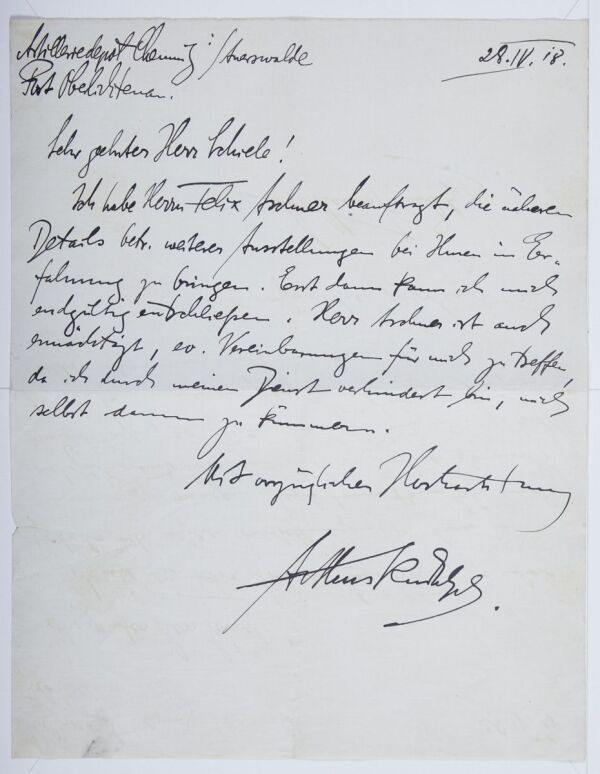 Artilleriedepot Chemnitz i/Auerswalde 28.IV.18.
Post Oberlichtenau.
Sehr geehrter Herr Schiele!
Ich habe Herrn Felix beauftragt, die näheren
Details betr. weiterer Ausstellungen bei Ihnen in Er-
fahrung zu bringen. Erst dann kann ich mich
endgültig entschließen. Herr ist auch
ermächtigt, ev. Vereinbarungen für mich zu treffen,
da ich durch meinen Dienst verhindert bin, mich
selbst darum zu kümmern.
Mit vorzüglicher Hochachtung